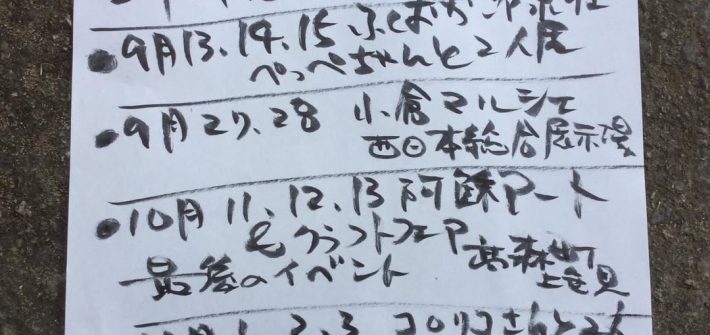 ●9月13、14、15 ふくおか
ぺっぺちゃんと2人展
●9月27、28 小倉マルシェ
西日本総合展示場
●10月11、12、13 阿蘇アート
&クラフトフェア 高森町
上色見
最後のイベント
2、3